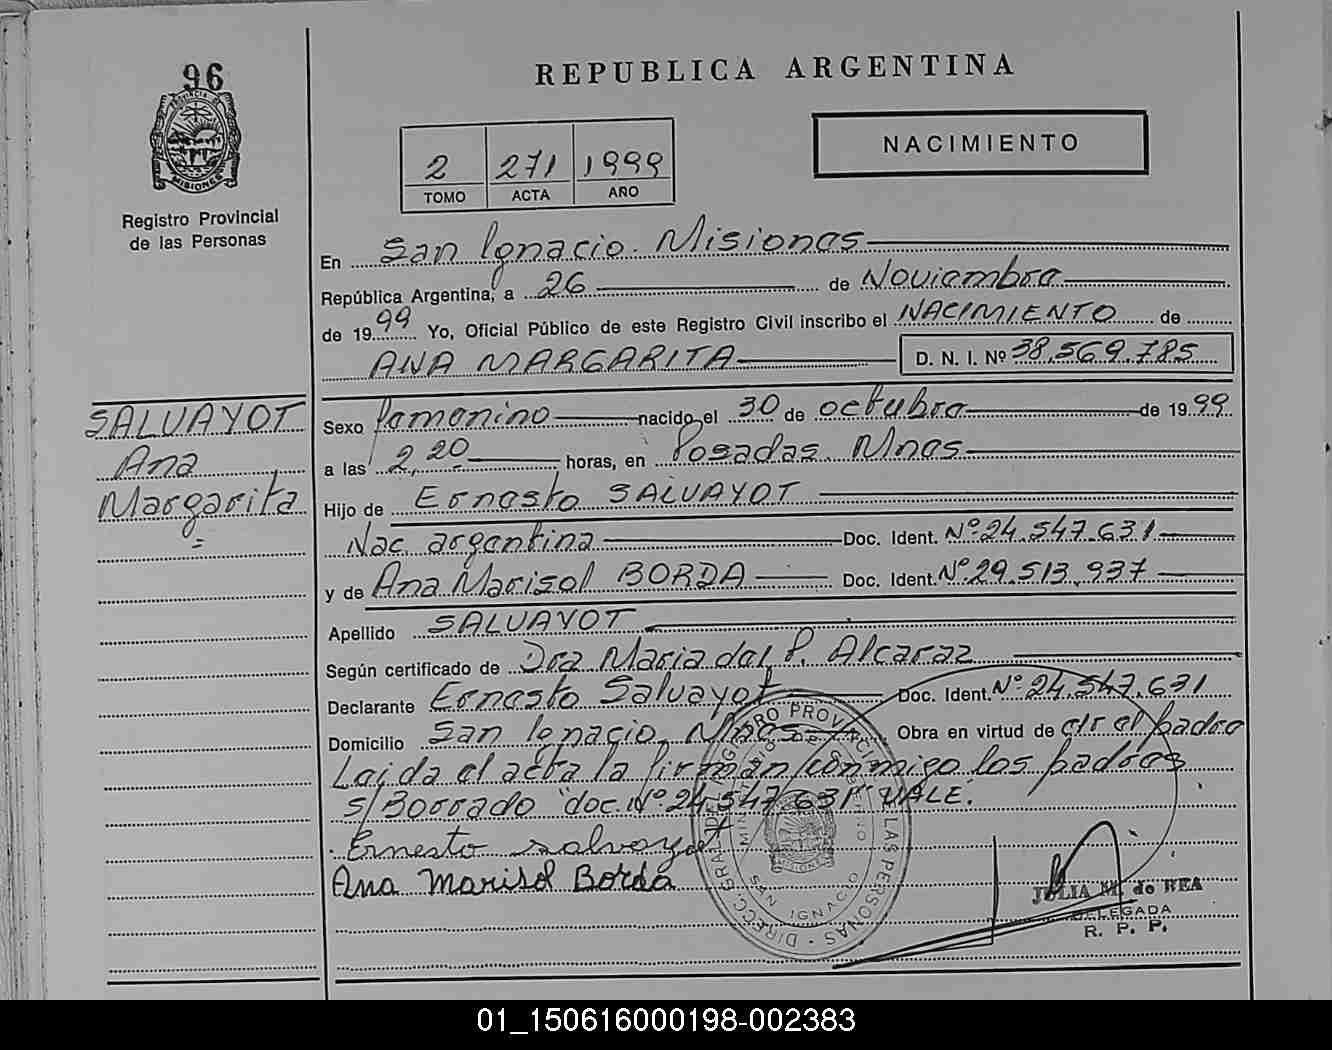 96
PROVINCIA DE
MISIONES
Registro Provincial
de las Personas
REPUBLICA ARGENTINA
NACIMIENTO
2 271 1999
TOMO ACTA AÑO
En San Ignacio. Misiones
República Argentina, a 26 de Noviembre
de 1999 Yo, Oficial Público de este Registro Civil inscribo el NACIMIENTO de
ANA MARGARITA D. N. I. Nº 38.569.785
SALVAYOT
Ana
Margarita
Sexo femenino nacido el 30 de octubre de 1999
a las 2,20 horas, en Posadas. Mnes
Hijo de Ernesto SALVAYOT
Nac. argentina Doc. Ident. Nº 24.547.631
y de Ana Marisol BORDA Doc. Ident. Nº 29.513.937
Apellido SALVAYOT
Según certificado de Dra Maria del P. Alcaraz
Declarante Ernesto Salvayot Doc. Ident. Nº 24.547.631
Domicilio San Ignacio, Mnes Obra en virtud de c/r el padre
Leida el acta la firman conmigo los padres
s/Borrado "doc. Nº 24.547.631" VALE.
Ernesto Salvayot
Ana Marisol Borda
DIRECC. GRAL. DEL REGISTRO PROVINCIAL DE LAS PERSONAS
MINISTERIO DE GOBIERNO
SAN IGNACIO
JULIA M. de REA
DELEGADA
R. P. P.
01_150616000198-002383